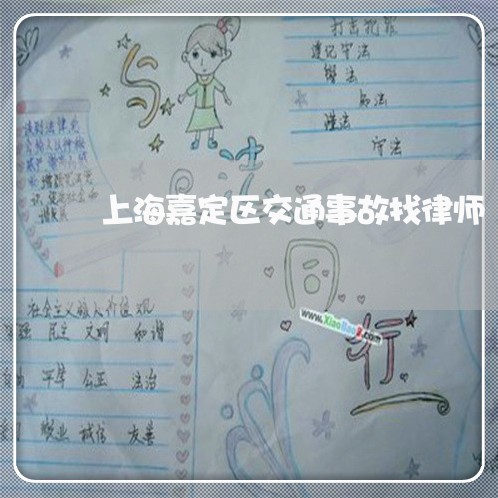 打击犯罪
遵纪守法
学法
知法
懂法
守法
与
法
同
行
谈到法律
会给人以神秘
上海嘉定区交通事故找律师
www.XiaoBao8.com
社会主义核心价值观
富强 民主 文明 和谐
自由 平等 公正 法治
敬业 诚信 友善